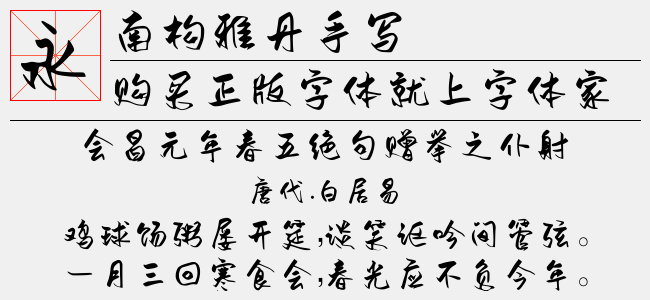 永
南构雅丹手写
购买正版字体就上字体家
会昌元年春五绝句赠举之仆射
唐代.白居易
鸡球饧粥屡开筵,谈笑讴吟间管弦。
一月三回寒食会,春光应不负今年。